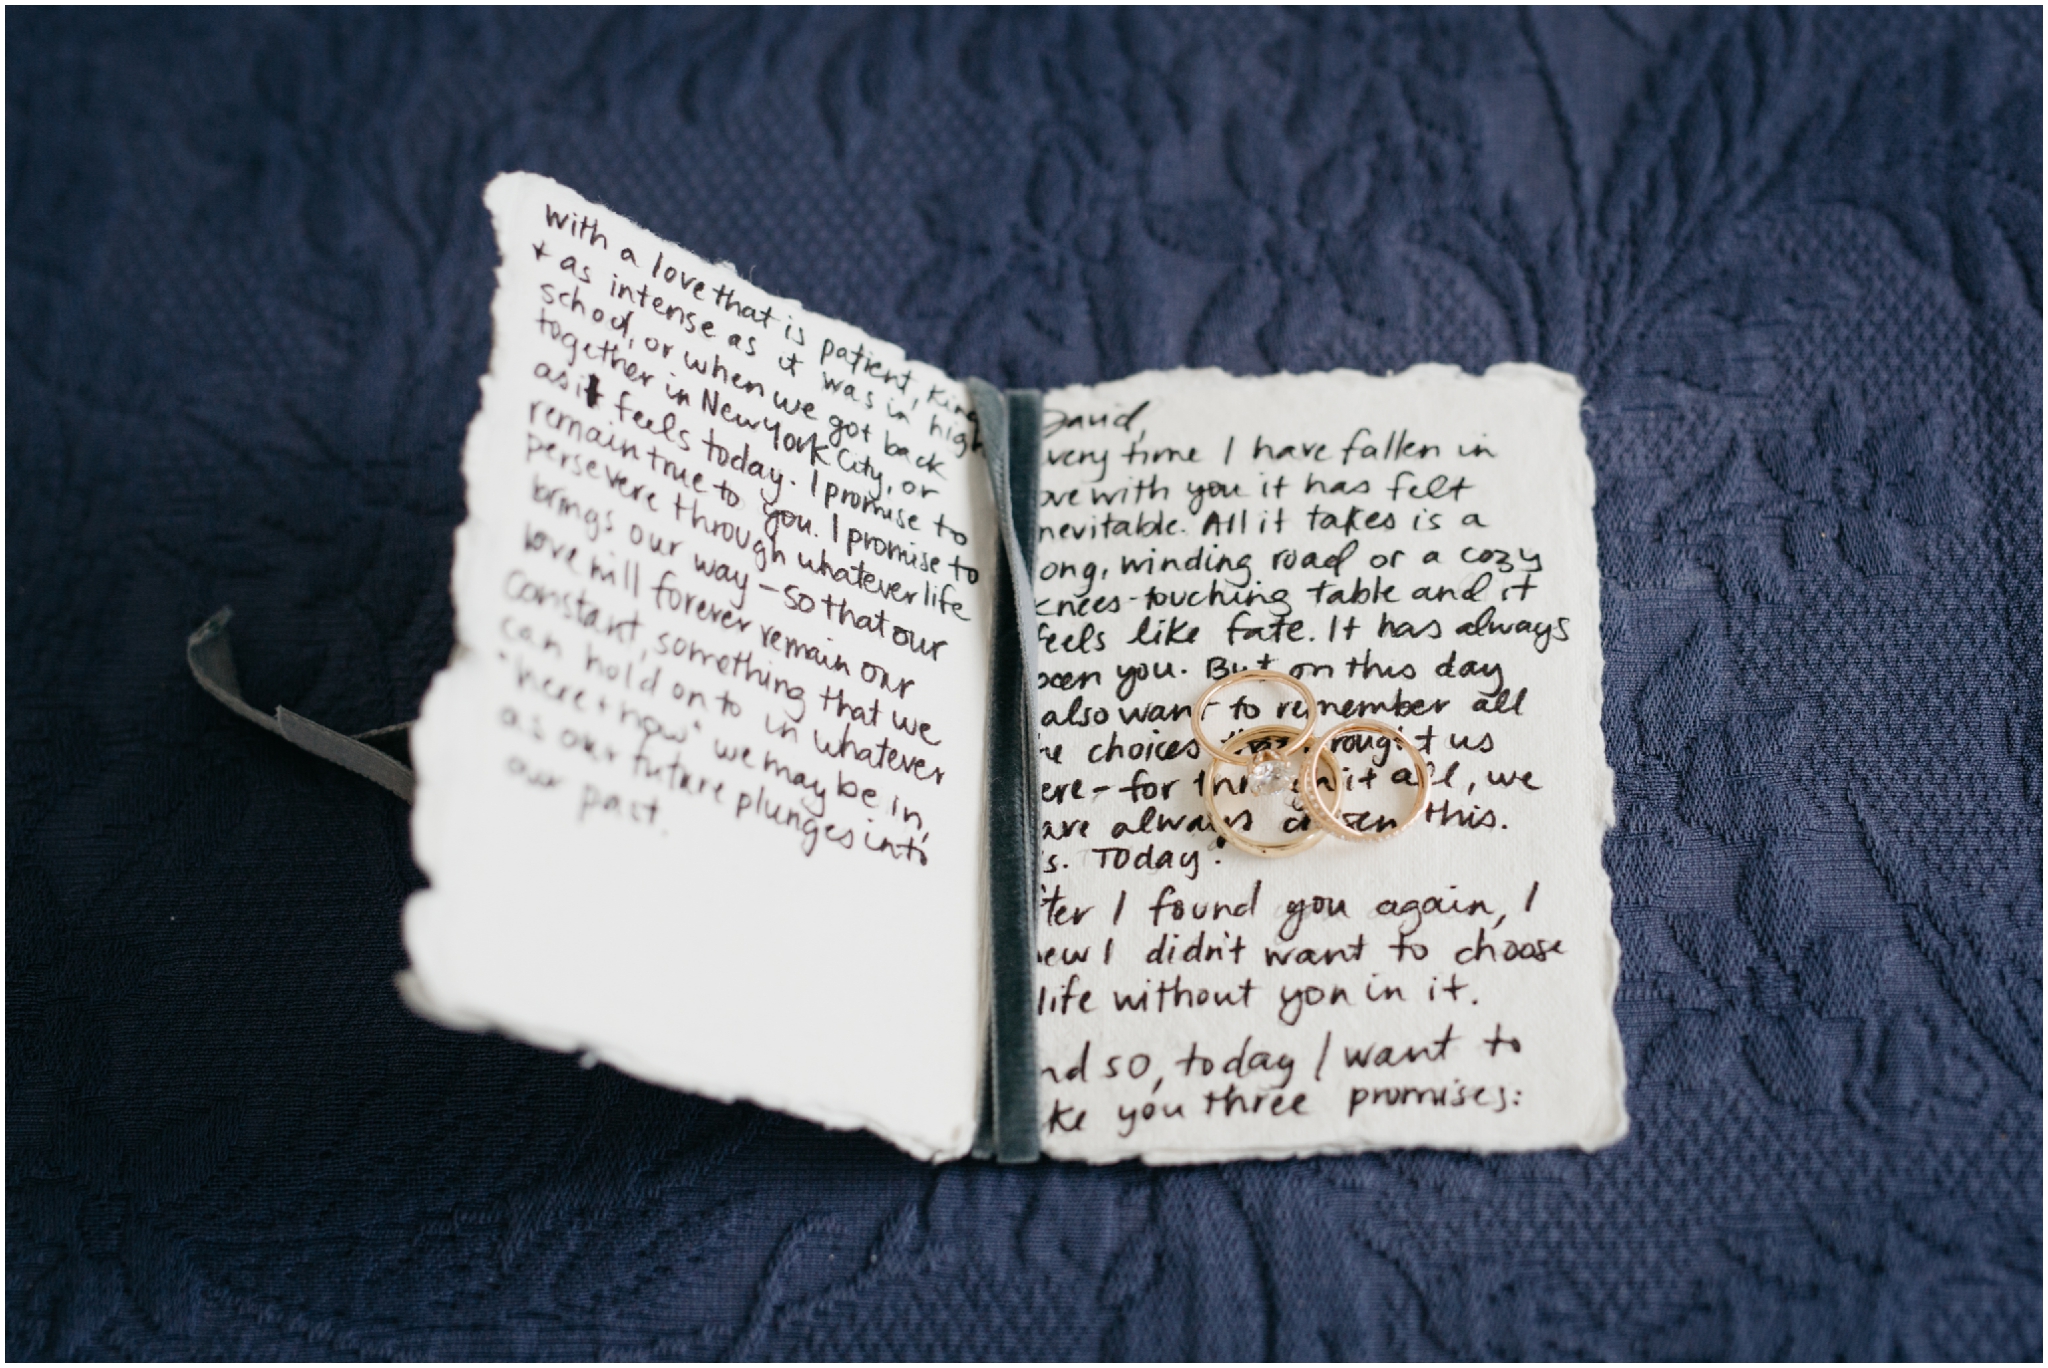 with a love that is patient, kind
+ as intense as it was in high
school, or when we got back
together in New York City, or
as it feels today. I promise to
remain true to you. I promise to
persevere through whatever life
brings our way - so that our
love will forever remain our
constant, something that we
can hold on to in whatever
"here + now" we may be in,
as our future plunges into
our past.
David,
very time I have fallen in
ove with you it has felt
nevitable. All it takes is a
ong, winding road or a cozy
knees-touching table and it
feels like fate. It has always
been you. But on this day
also want to remember all
he choices that brought us
ere - for through it all, we
are always chosen this.
s. Today.
fter I found you again, I
new I didn't want to choose
life without you in it.
nd so, today I want to
ke you three promises: